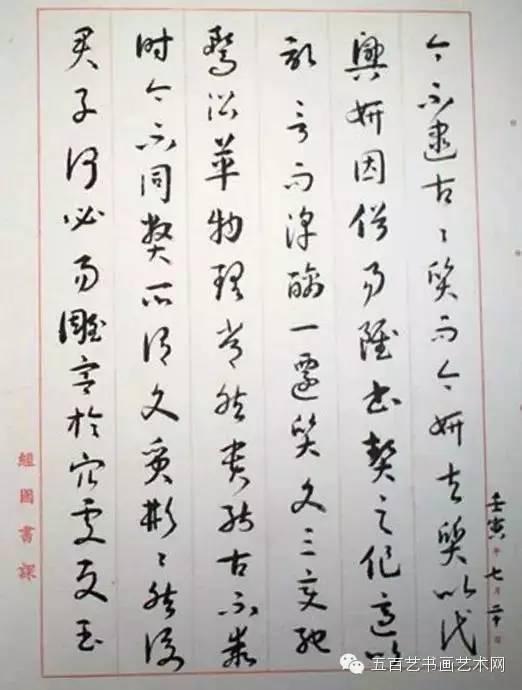 今不逮古々質而今妍夫質以代
興妍因俗易雖書契之作適以
記言而淳醨一遷質文三變馳
鶩沿革物理常然貴能古不乖
時今不同弊所謂文質彬々然後
君子何必易雕宮於穴處反玉
壬寅年七月二十日
圖書課
五百艺书画艺术网